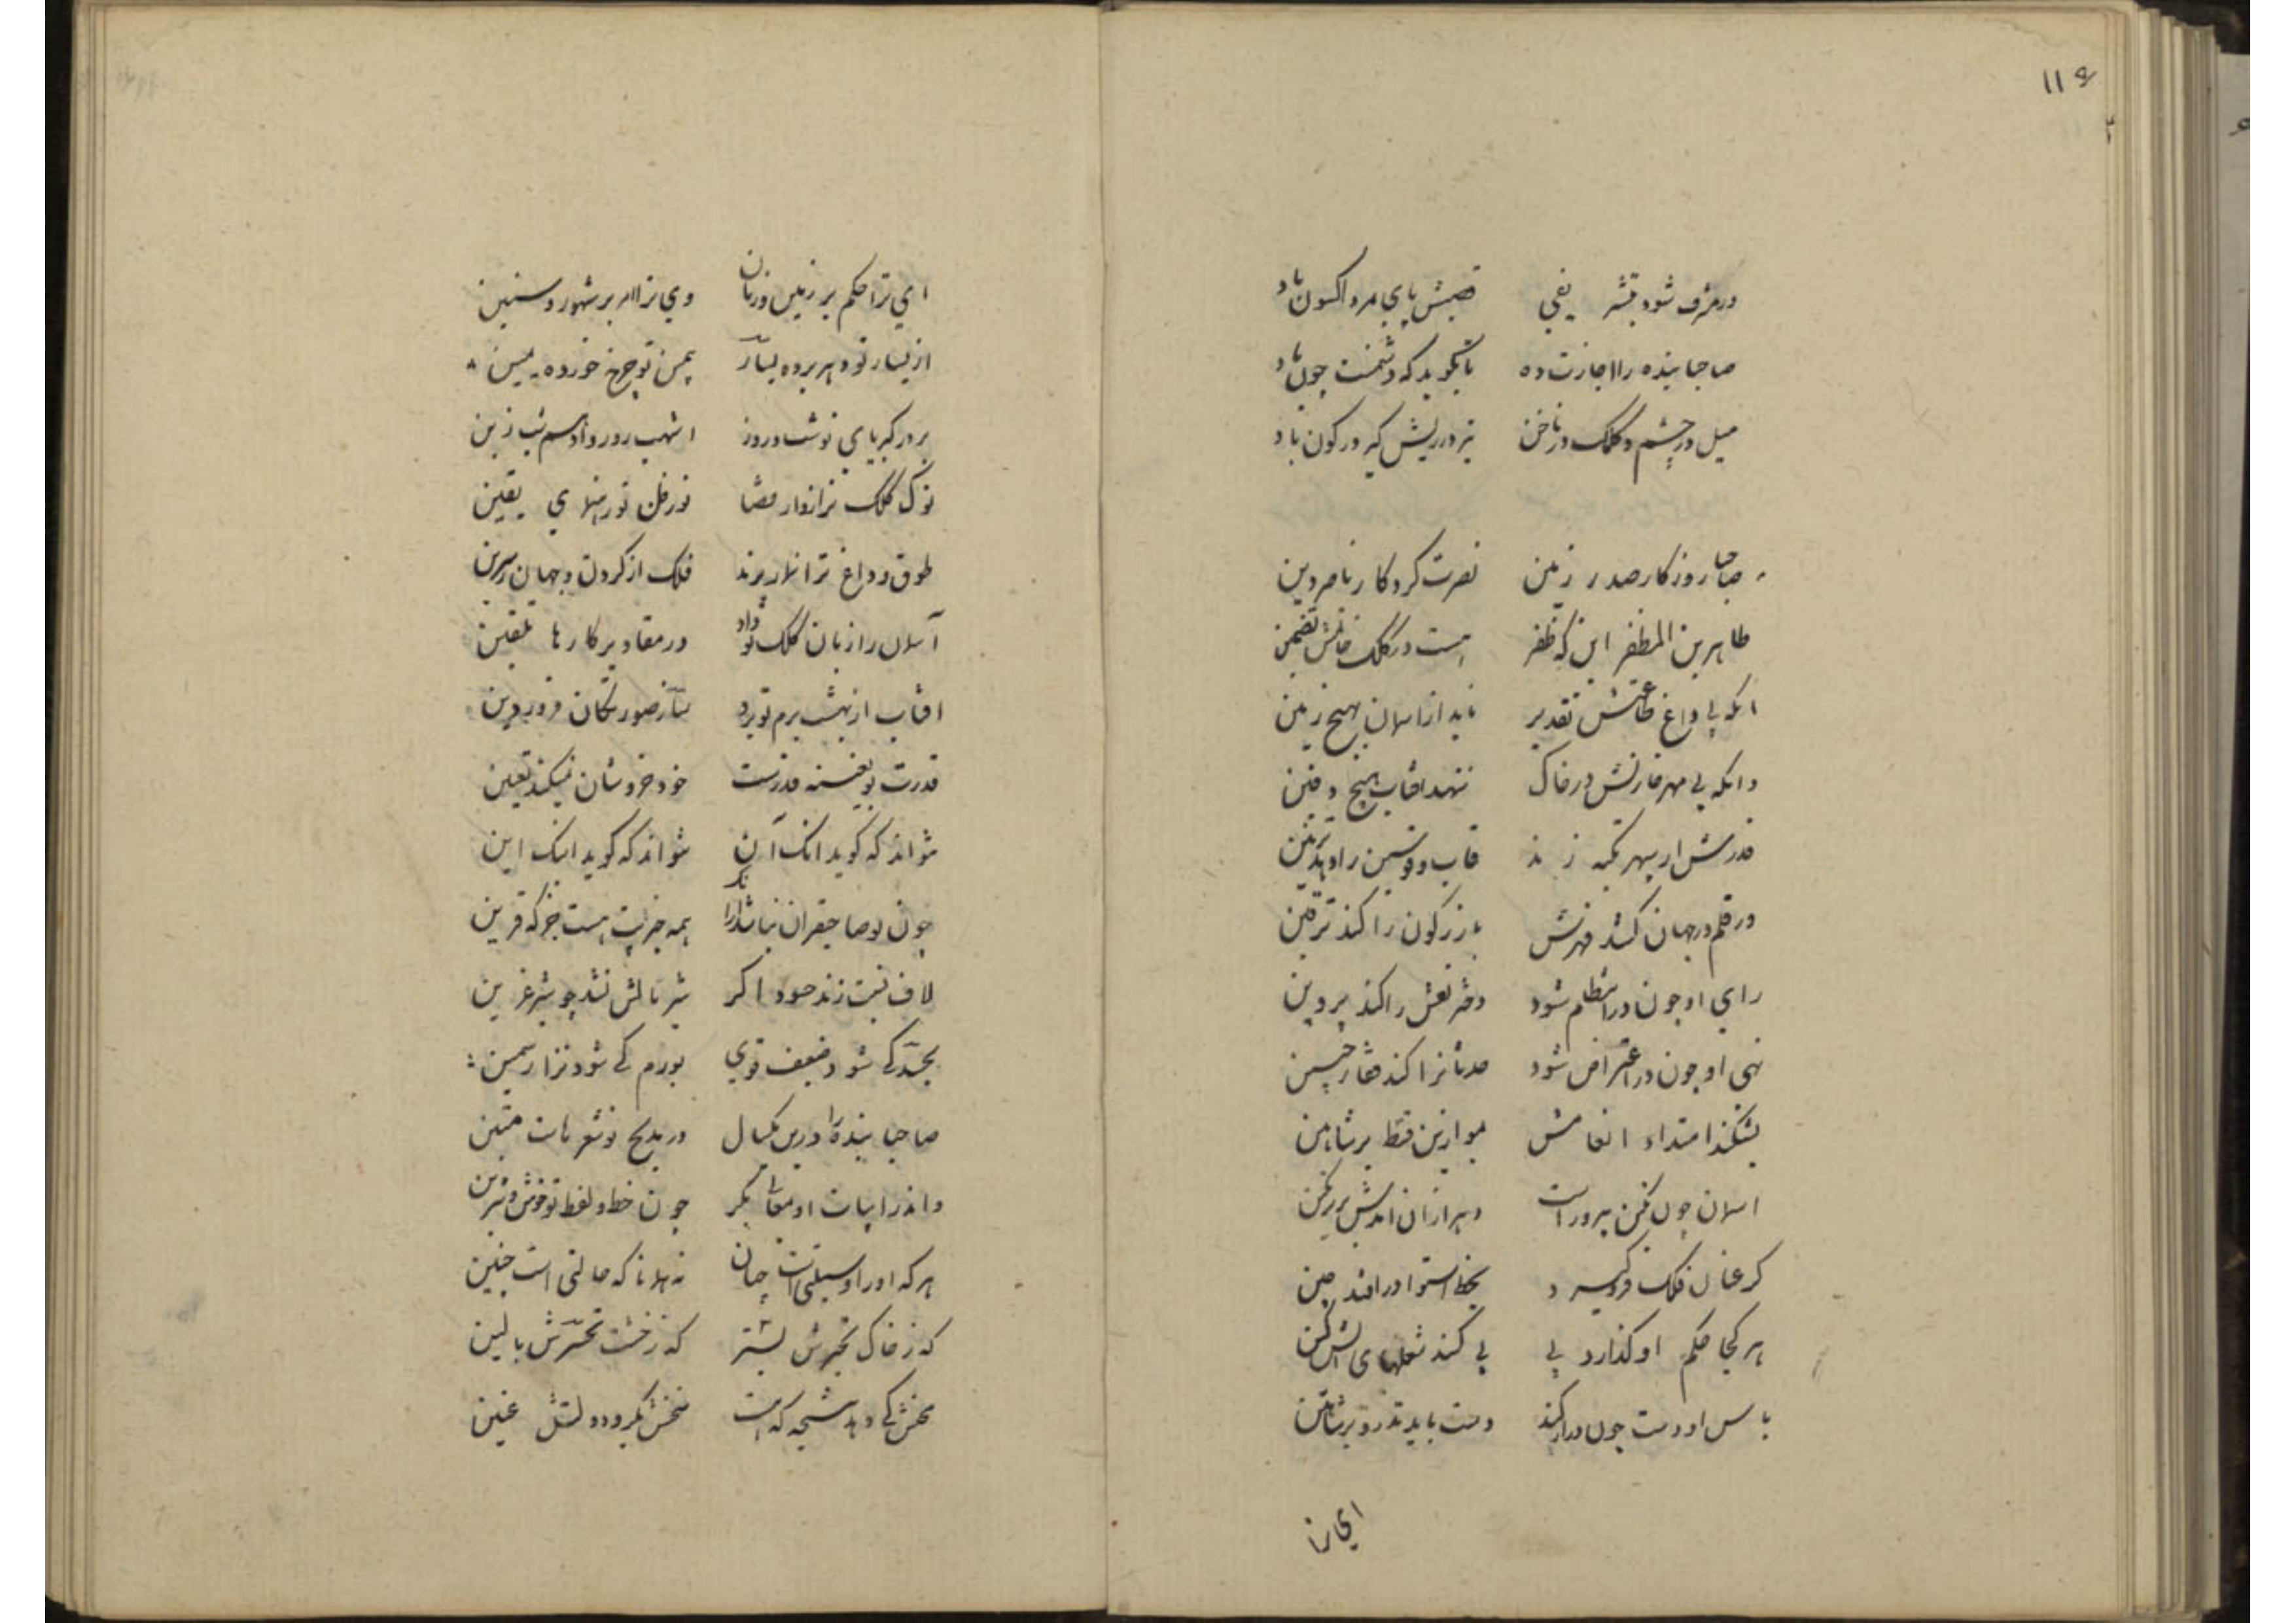 ۱۱۶
در مزف شود بتشریفی قصبش پای مرد اکسون باد
صاحبا بنده را اجازت ده تا بگوید که دشمنت چون باد
میل در چشم و کلک در ناخن تیز در ریش کیر در کون باد
صاحب روزکار صدر زمین نصرت کردکار ناصر دین
طاهر بن المظفر این که ظفر هست در کلک و خاتمش تضمین
انکه بی داغ طاعتش تقدیر ناید از اسمان بهیچ زمین
وانکه بی مهر خازنش در خاک ننهد افتاب هیچ دفین
قدرتش ار بر سپهر تکیه زند قاب قوسین را دهد تزیین
ور قلم در جهان کشد قهرش بازر کون را کند ترقین
رای او چون در انتظام شود دختر نعش را کند پروین
نهی او چون در اعتراض شود حدثان را کند حصار حصین
بشکند امتداد انعامش موازین قسط بر شاهین
اسمان چون نکین پیروزه است
کر عنان فلک فرو کیرد بخط استوا در افتد چین
هر کجا حکم او کذارد پی پی کند شعلهای آتش کین
باس او دست چون دراز کند دست یابد تذرو بر شاهین
ای ترا
ای ترا حکم بر زمین و زمان وی ترا امر بر شهور و سنین
از یسار تو دهر برده یسار بیمین تو چرخ خورده یمین
بر در کبریای تو شب و روز اشهب روز و ادهم شب زین
نوک کلک ترا زوار قضا نور ظن تو رهنمای یقین
طوق و داغ ترا نماز برند فلک از کردن و جهان ز سرین
آسمان را زبان کلک تو داد در مقادیر کارها تلقین
افتاب از بهشت بزم تو برد ساز صورتکران فروردین
قدرت تو بعینه قدرست خود خرد شان نمیکند تعیین
نتواند که کوید انک آن نتواند که کوید اینک این
چون تو صاحبقران نباشد از آنک همه چیزیت هست جز که قرین
لاف نسبت زند حسود اکر شیر بالش نشد چو شیر عرین
بجسد کی شود ضعیف قوی بورم کی شود نزار سمین
صاحبا بنده را درین یکسال در مدیح تو شعرهاست متین
واندر ابیات او معانی بکر چون خط و لفظ تو خوش و شیرین
هر که او را وسیلتی است چنان نه همانا که حالتی است چنین
که ز خاک تحیرش بستر که ز خشت تحسرش بالین
سخنش کی دهد نتیجه که هست سخنش بکر و دولتش عنین